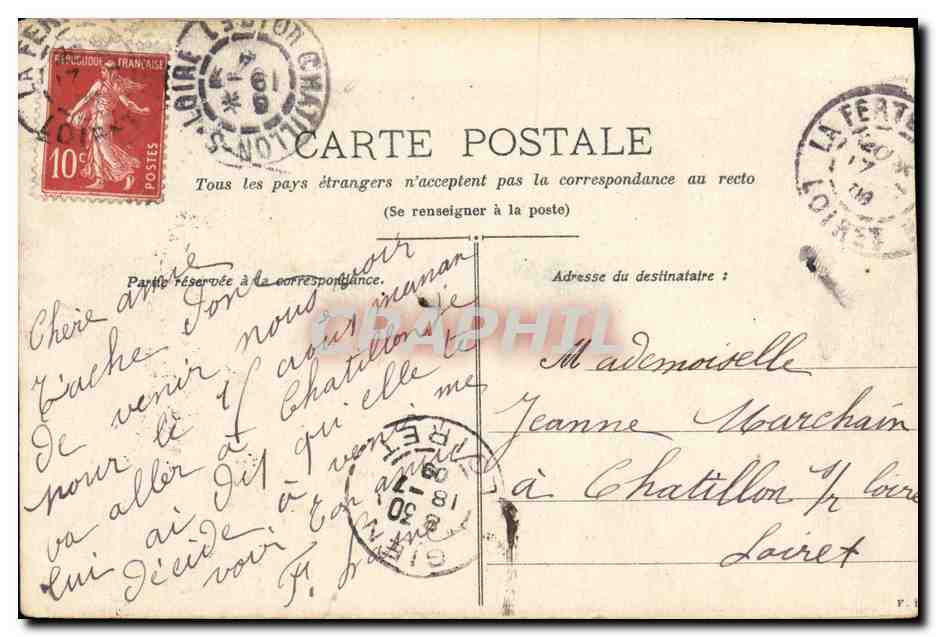 RÉPUBLIQUE FRANÇAISE
10c POSTES
LA FERTE
LOIRET
CHATILLON-S-LOIRE
CARTE POSTALE
Tous les pays étrangers n'acceptent pas la correspondance au recto
(Se renseigner à la poste)
LA FERTE
LOIRET
Partie réservée à la correspondance.
Adresse du destinataire :
Chère amie
tâche donc
de venir nous voir
pour le 15 août maman
va aller à Chatillon je
lui ai dit qu'elle te
décide à venir me
voir Ton amie
F.
GIEN
LOIRET
8 30
18 - 7
09
Mademoiselle
Jeanne Marchain
à Chatillon s/r Loire
Loiret
CPAPHIL